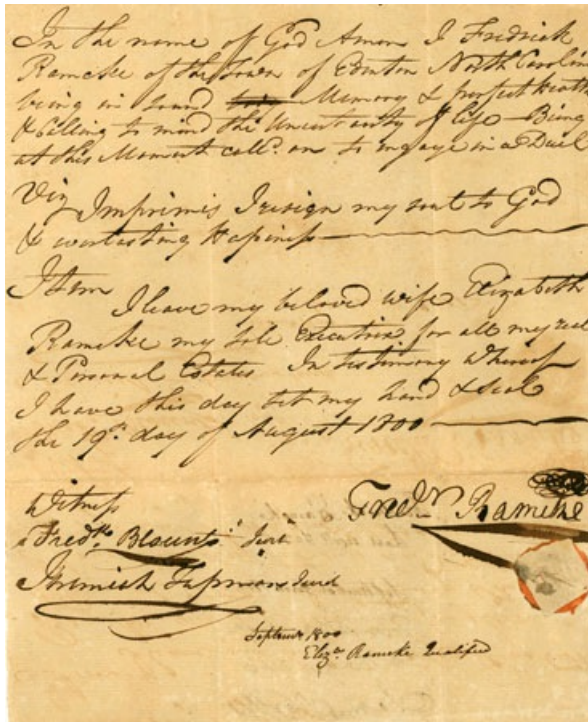 In the name of God Amen I Fredrick
Rameke of the Town of Edenton North Carolin
being in sound Memory & perfect health
& Calling to mind the Uncertainty of life Being
at this Moment call'd on to engage in a Duel
Viz Imprimis I resign my soul to God
& everlasting Hapiness
Item
I leave my beloved wife Elizabeth
Rameke my sole Executrix for all my real
& Personal Estates In testimony Whereof
I have this day set my hand & seal
the 19th day of August 1800
Witness
Fredk Blount Jurt
Fredk Rameke
Jeremiah Jurat
Septemr 1800
Elizth Rameke Qualified